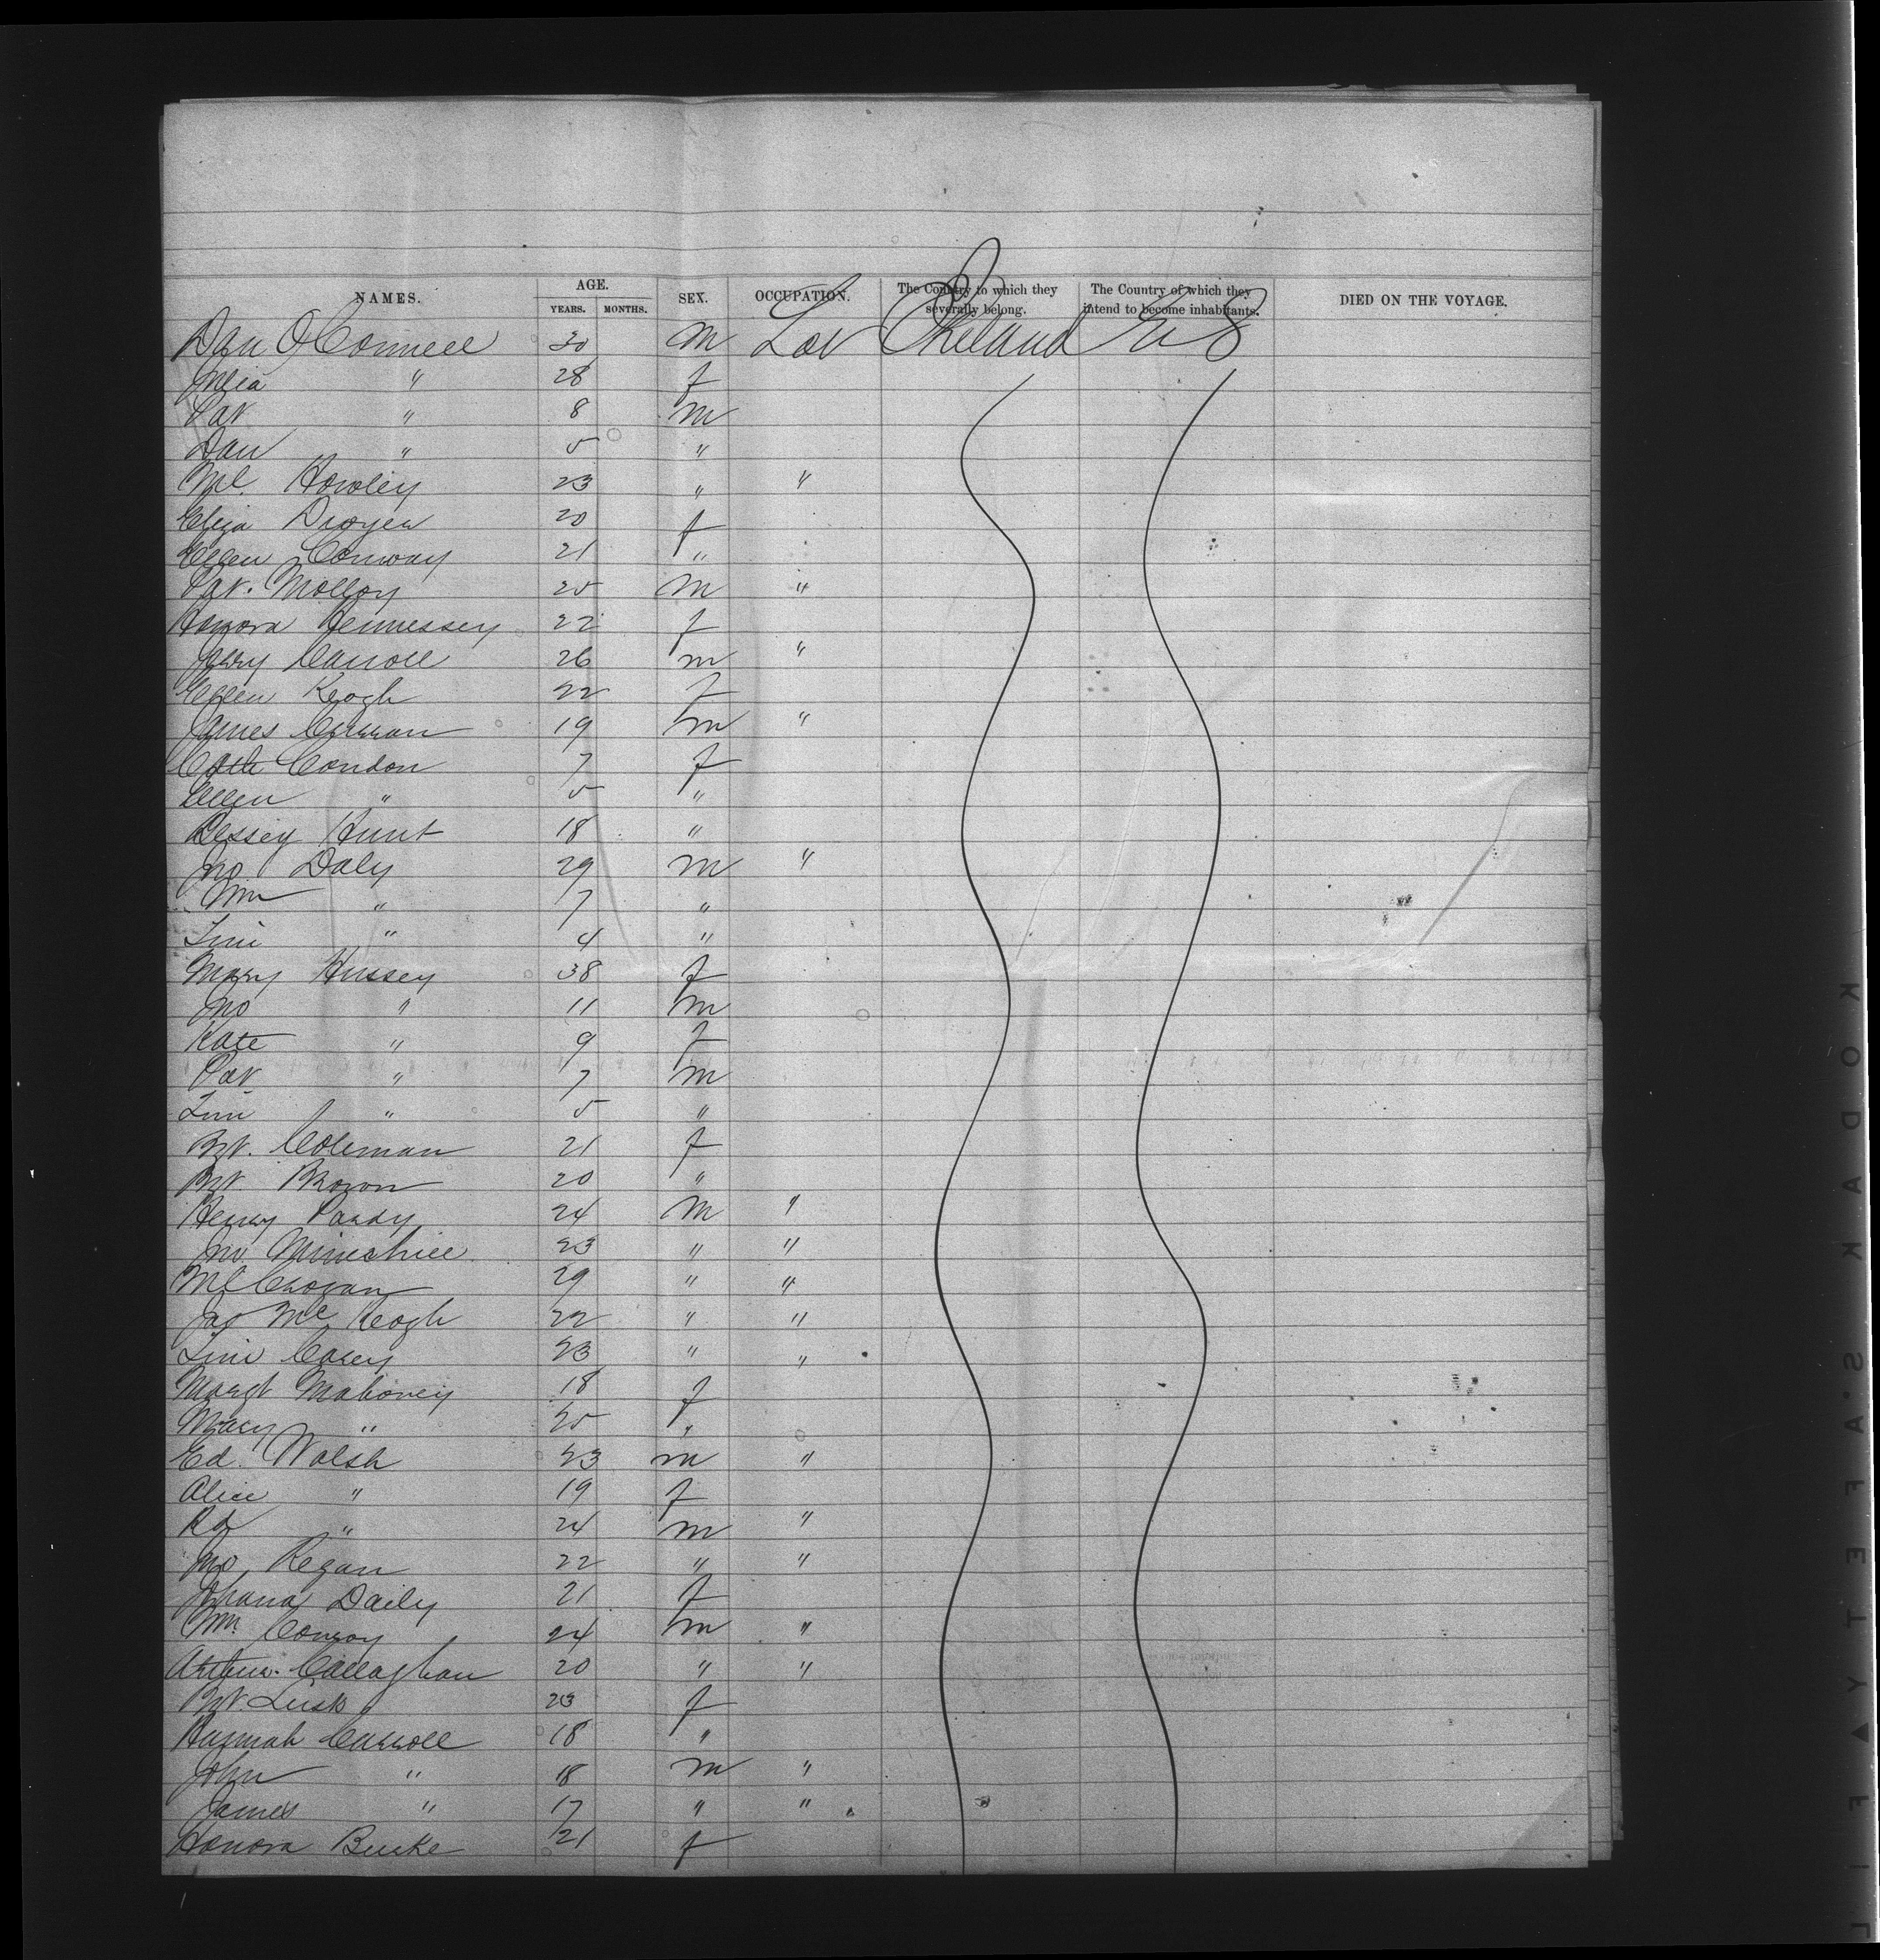 NAMES. AGE. SEX. OCCUPATION. The Country to which they severally belong. The Country of which they intend to become inhabitants. DIED ON THE VOYAGE.
YEARS. MONTHS.
Dan O'Connell 30 m Lab Ireland U S
Julia " 28 f
Pat " 8 m
Dan " 5 "
Ml. Howley 23 " "
Eliza Dwyer 20 f
Ellen Conway 21 "
Pat. Molloy 25 m "
Honora Hennessey 22 f
Jerry Carroll 26 m "
Ellen Keogh 22 f
James Curran 19 m "
Cath Condon 7 f
Ellen " 5 "
Bessey Hunt 18 "
Jno Daly 29 m "
Wm " 7 "
Tim " 4 "
Mary Hussey 38 f
Jno " 11 m
Kate " 9 f
Pat " 7 m
Tim " 5 "
Bgt. Coleman 21 f
Bgt. Brown 20 "
Henry Pardy 24 m "
Jno. 23 " "
Ml Crogan 29 " "
Jas Mc Keogh 22 " "
Tim Casey 23 " "
Margt Mahoney 18 f
Mary " 25 "
Ed. Walsh 23 m "
Alice " 19 f
Rd " 24 m "
Jno Regan 22 " "
Johana Daily 21 f
Wm. Conroy 24 m "
Arthur. Callaghan 20 " "
Bgt. Lusk 23 f
Hannah Carroll 18 "
John " 18 m "
James " 17 " "
Honora Burke 21 f
KODAK S.AFETY FIL